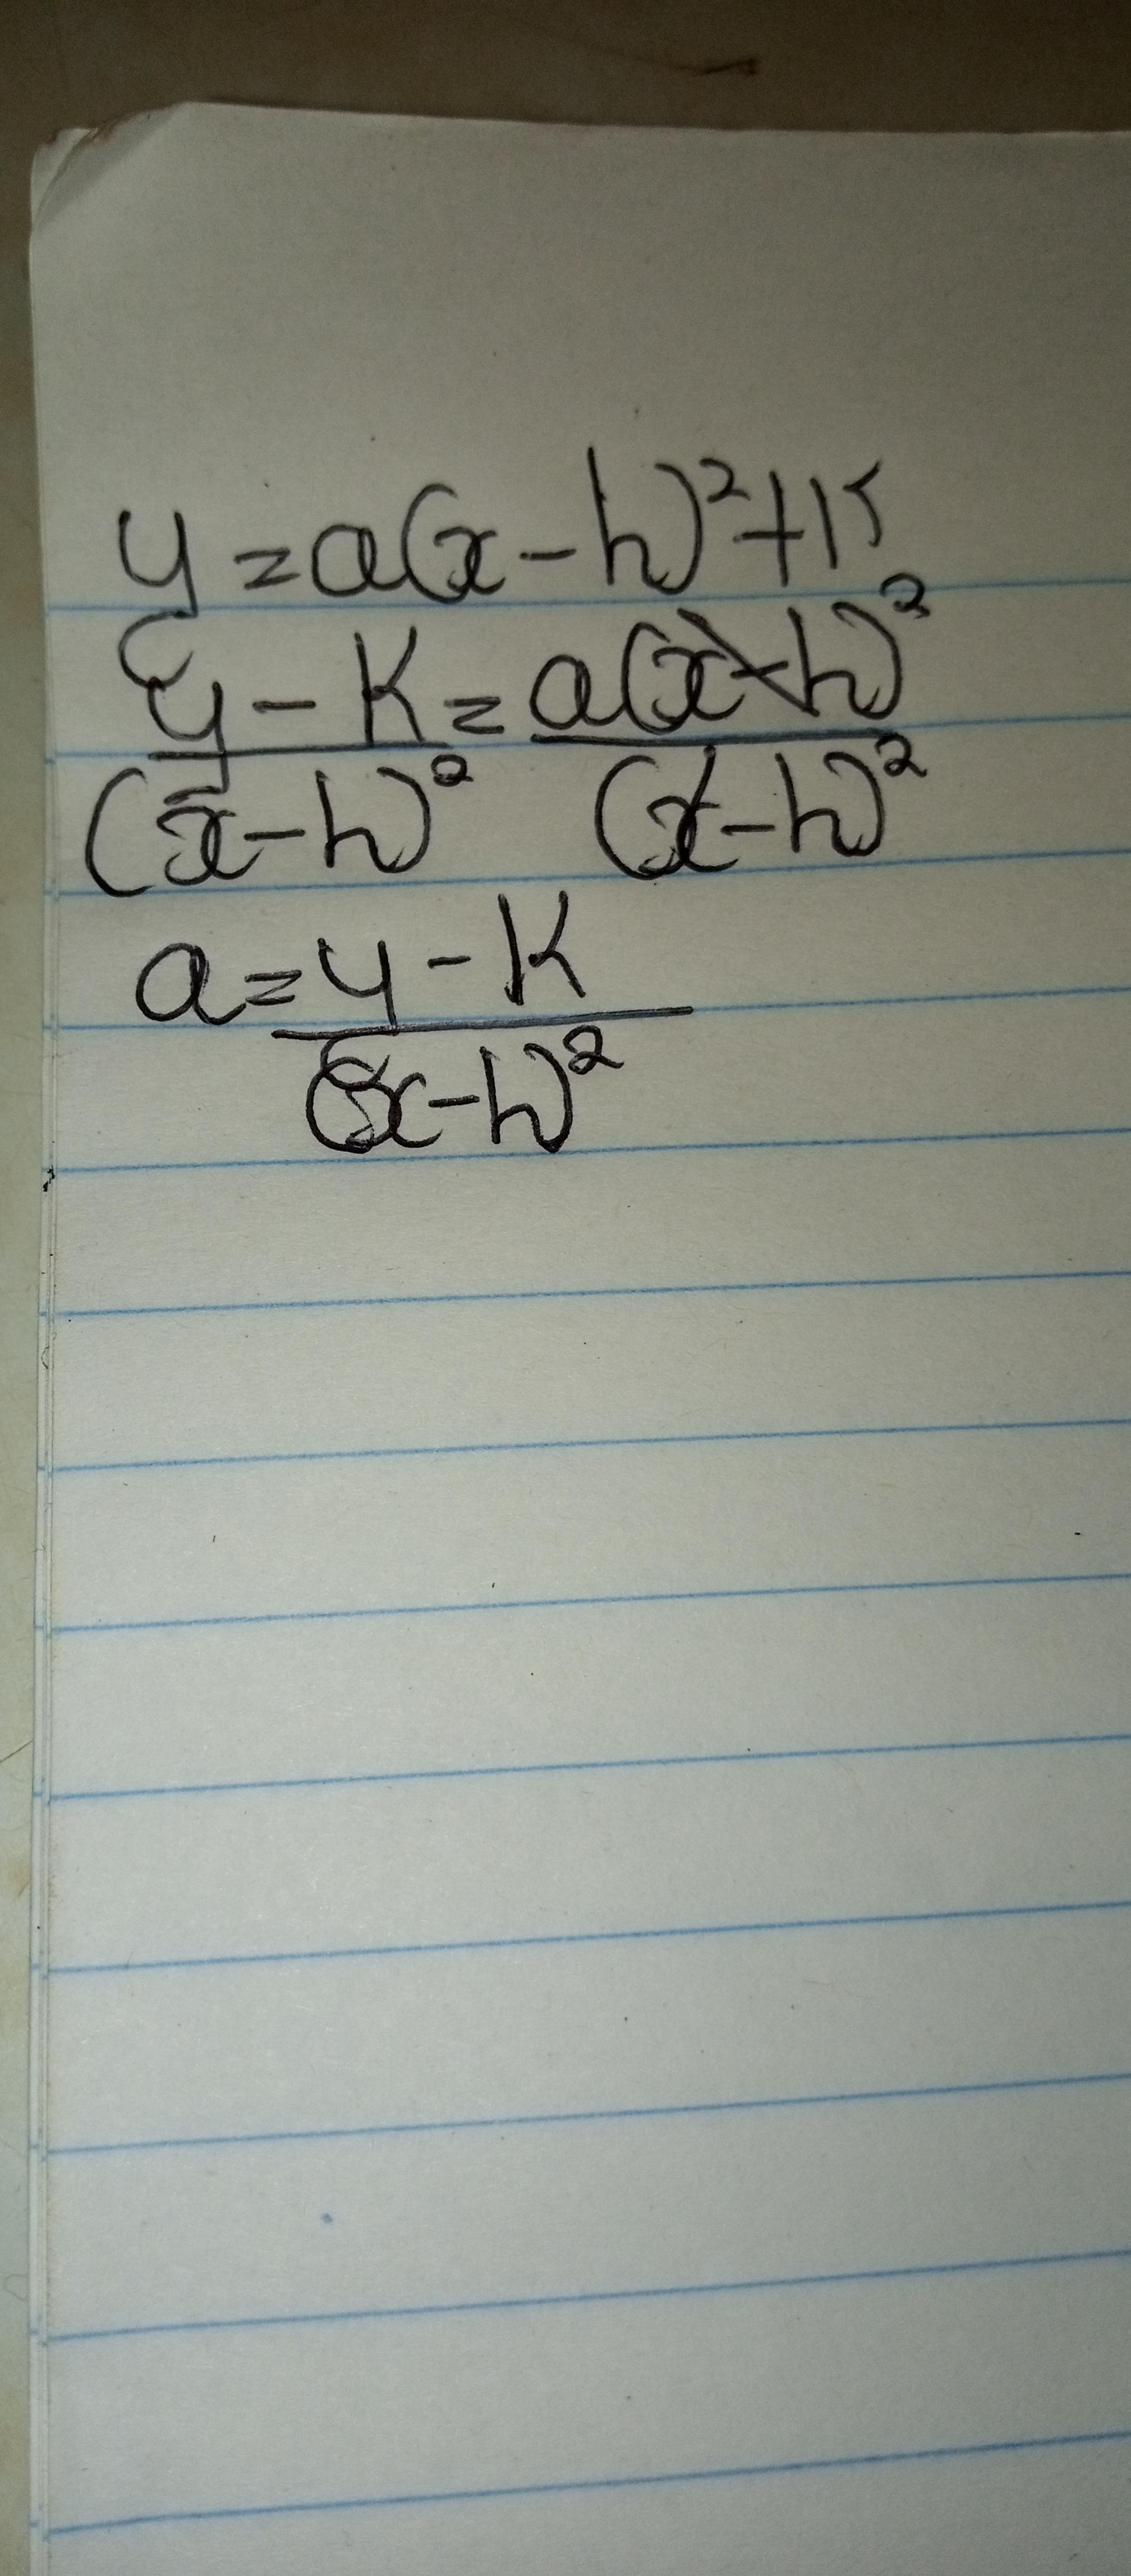 y = a(x - h)² + k
y - K = a(x - h)²
(x - h)² (x - h)²
a = y - K
(x - h)²